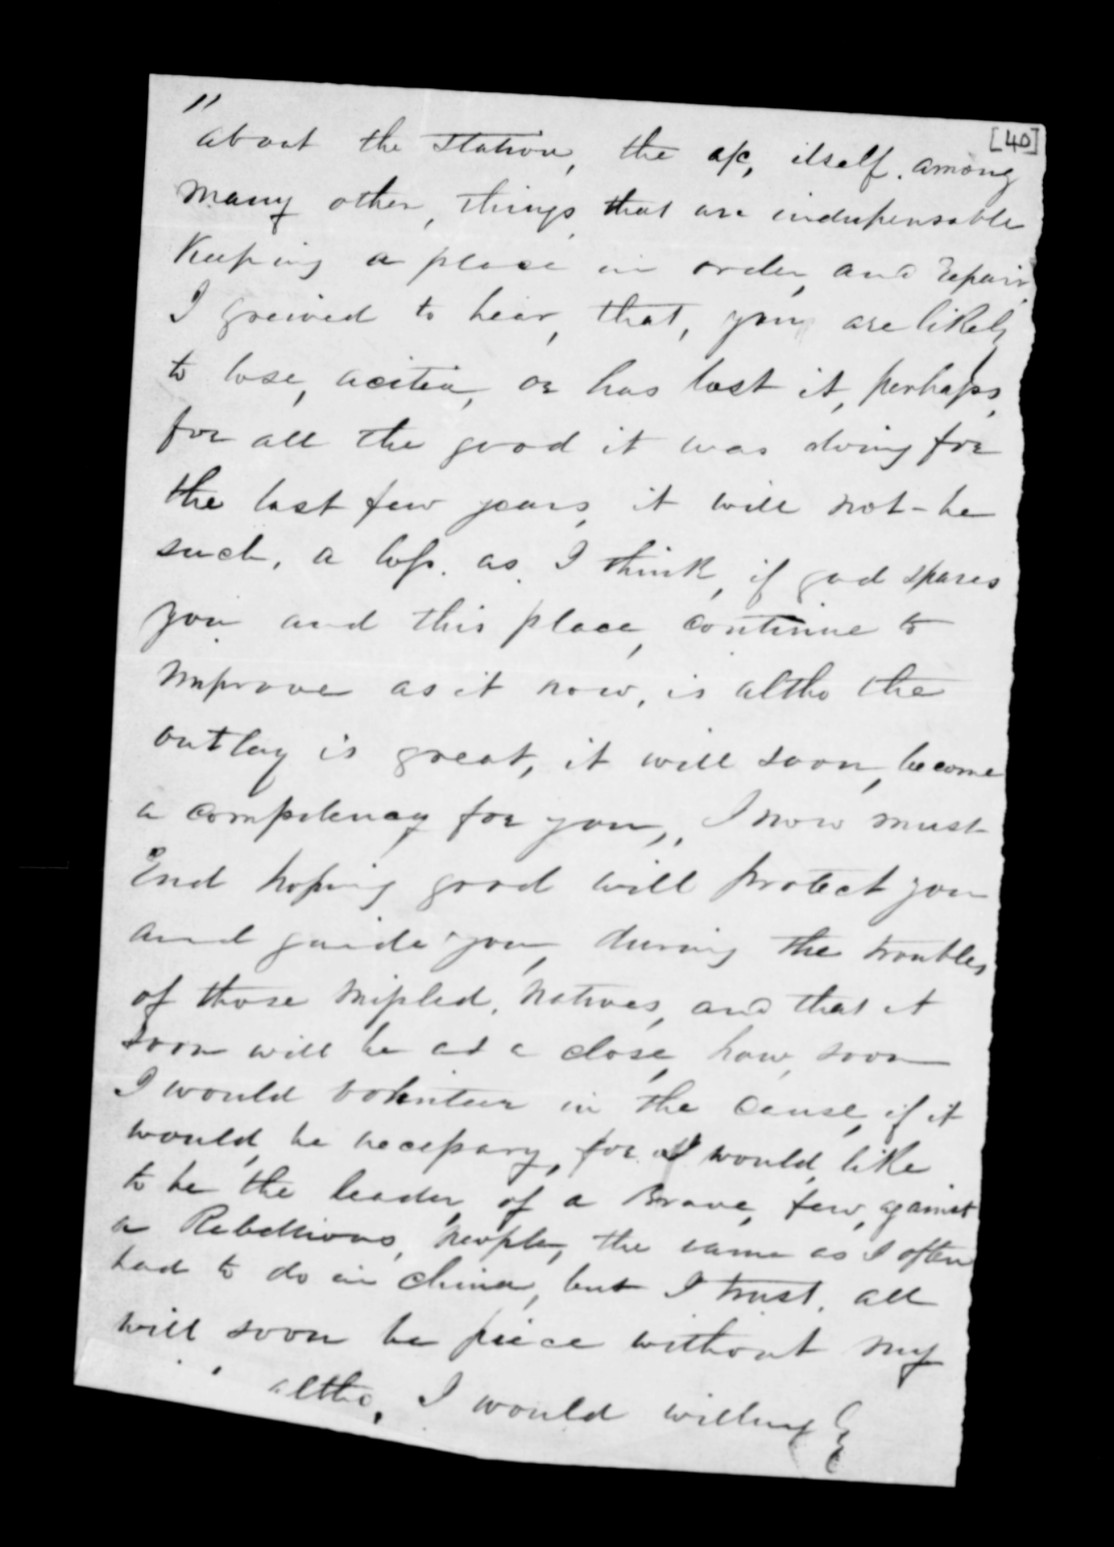 [40]
"
about the station, the ax, itself. among
many other, things, that are indispensable
Keeping a place in order, and repair,
I greived to hear, that, you are likely
to lose, or has lost it, perhaps,
for all the good it was doing for
the last few years, it will not-be
such, a loss. as. I think, if god spares
you and this place, continue to
improve as it now, is altho the
outlay is great, it will soon, become
a competency for you,, I now must
End hoping good will protect you
and guide you, during the troubles
of those misled, natives, and that it
soon will be at a close, how, soon
I would volunteer in the cause, if it
would, be necessary, for I would, like
to be the leader, of a Brave, few, against
a Rebellious, people, the same as I often
had to do in china, but I trust. all
will soon be piece without my
altho, I would willing